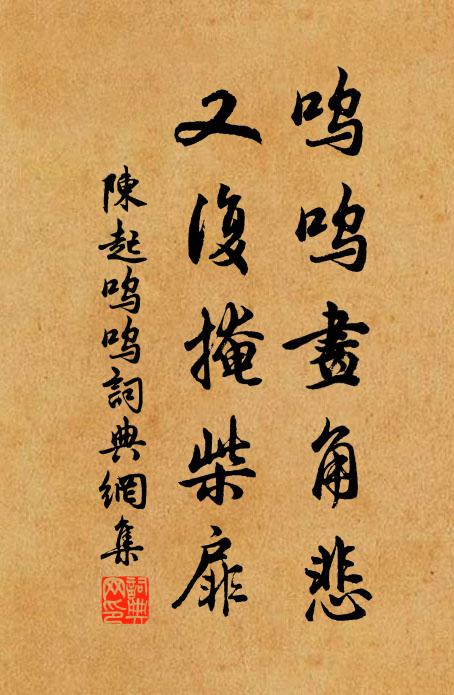 嗚嗚畫角悲
又復掩柴扉
陳起嗚嗚詞典網集
詞典網印